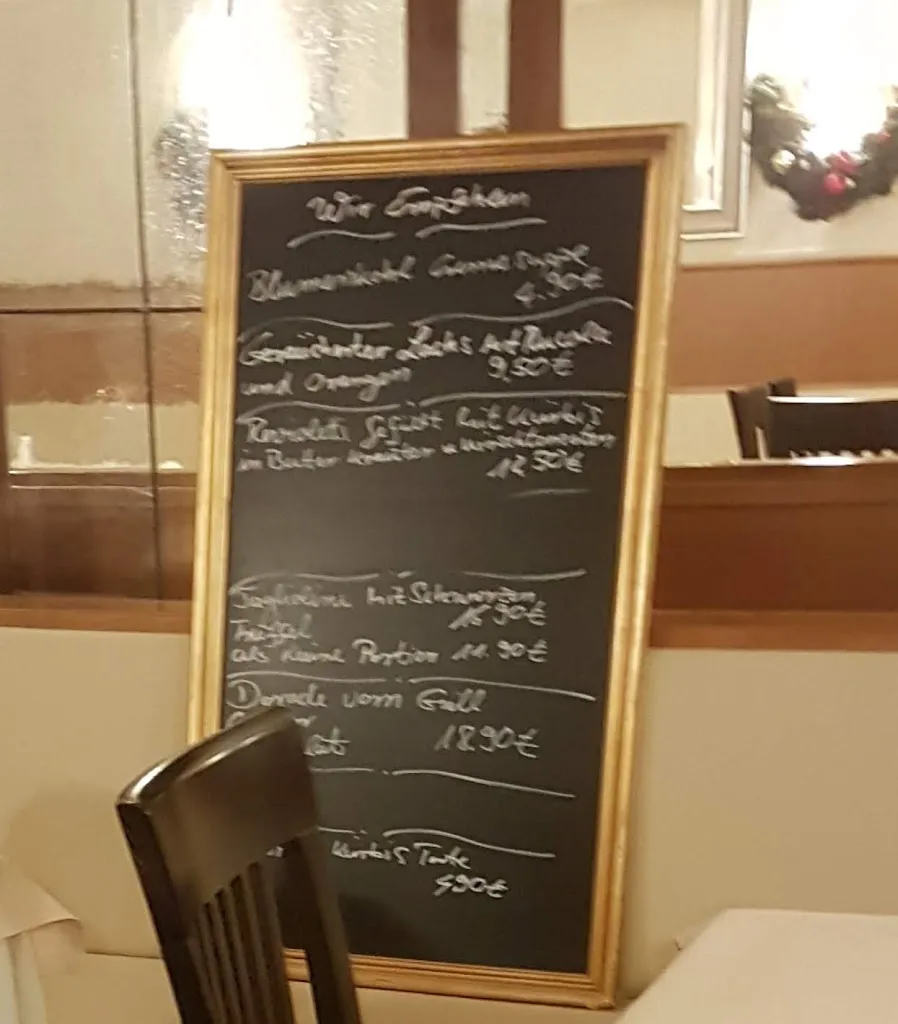 Wir Empfehlen
Blumenkohl Creme Suppe
4.90€
Geräucherter Lachs auf Rucola
und Orangen 9,50€
Ravioletti gefüllt mit Kürbis
in Butter Kräuter u Kirschtomaten
12,50€
Tagliolini mit Schwarzen
16.90€
Trüffel
als kleine Portion 11.90€
Dorade vom Grill
18.90€
Kürbis Torte
4,90€